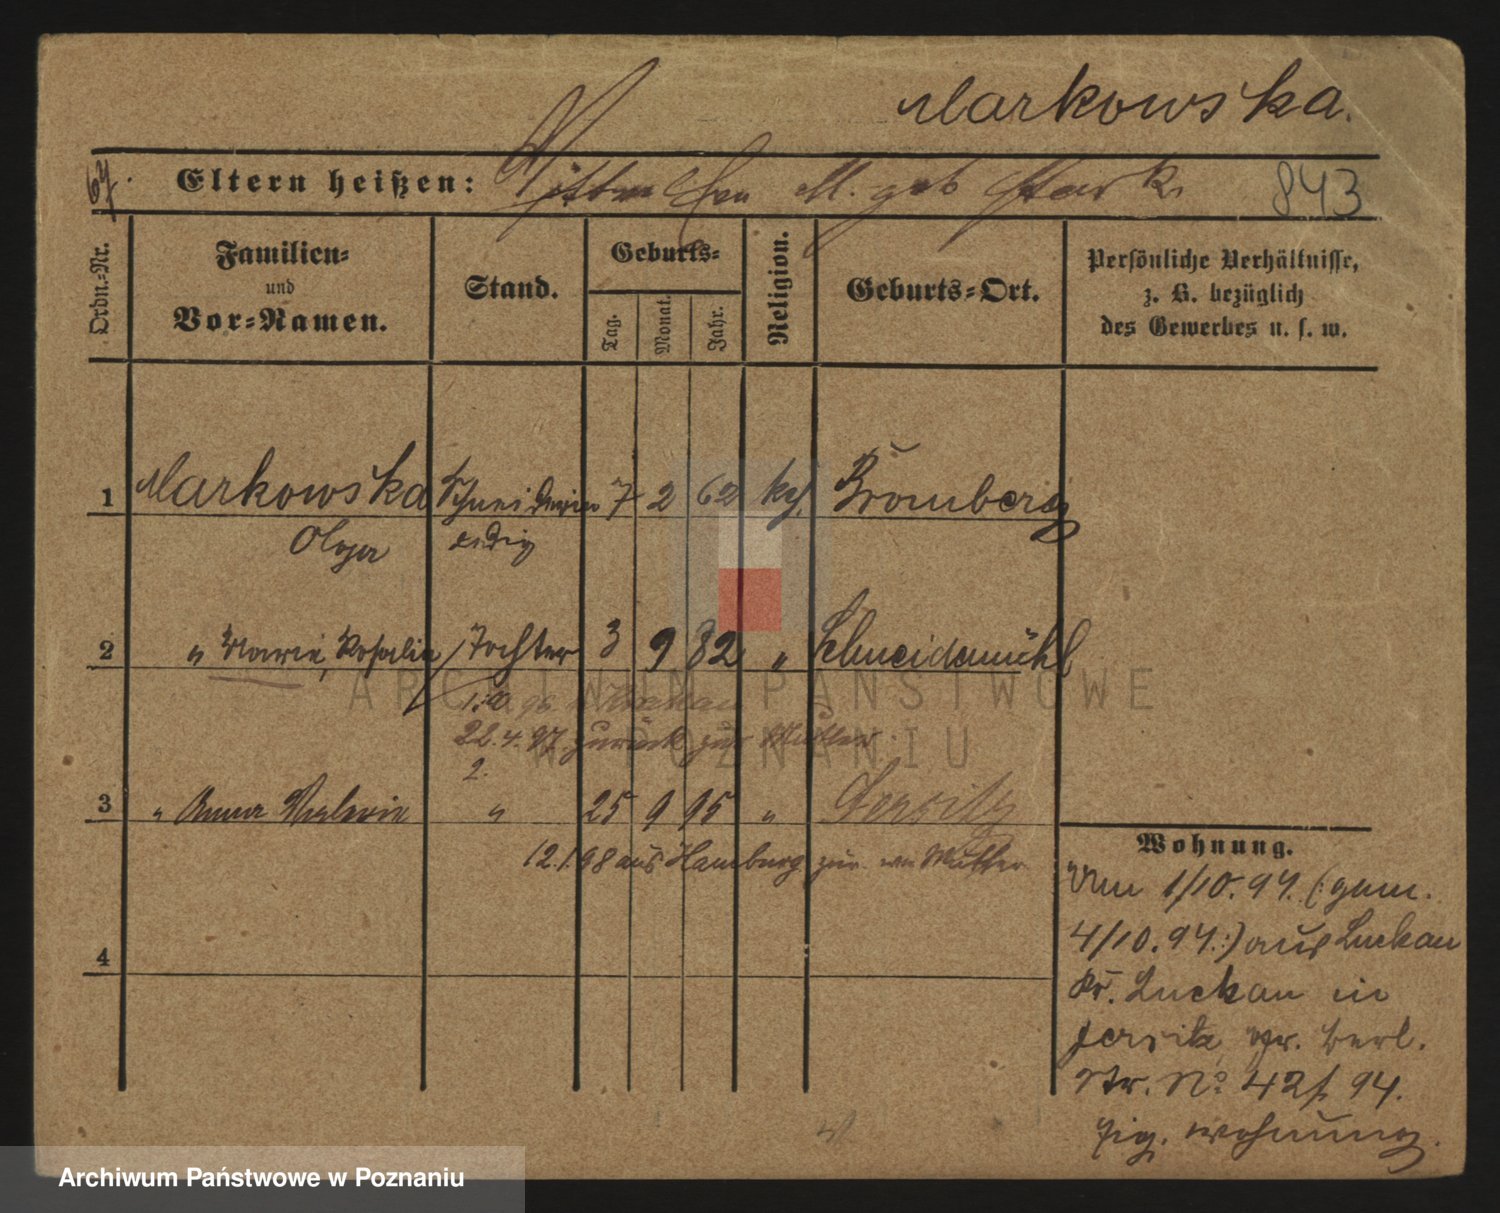 Markowska.
67.
Eltern heißen: M. geb Stark.
843
Ordn.=Nr.
Familien=
und
Vor=Namen.
Stand.
Geburts=
Tag.
Monat.
Jahr.
Religion.
Geburts=Ort.
Persönliche Verhältnisse,
z. B. bezüglich
des Gewerbes u. s. w.
1 Markowska Schneiderin 7 2 62 kt. Bromberg
Olga ledig
2 " Marie, Rosalie Tochter 3 9 82 " Schneidemühl
22.4.97 zurück zur Mutter.
2.
3 " Anna Valerie " 25 9 95 " Jersitz
12.1.98 aus Hamburg zur Mutter
4
Wohnung.
Am 1/10. 94. (gem.
4/10. 94.) aus Luckau
Kr. Luckau in
Jersitz Gr. Berl.
Str. No 42 f. 94.
Eig. Wohnung.
ARCHIWUM PAŃSTWOWE
W POZNANIU
Archiwum Państwowe w Poznaniu